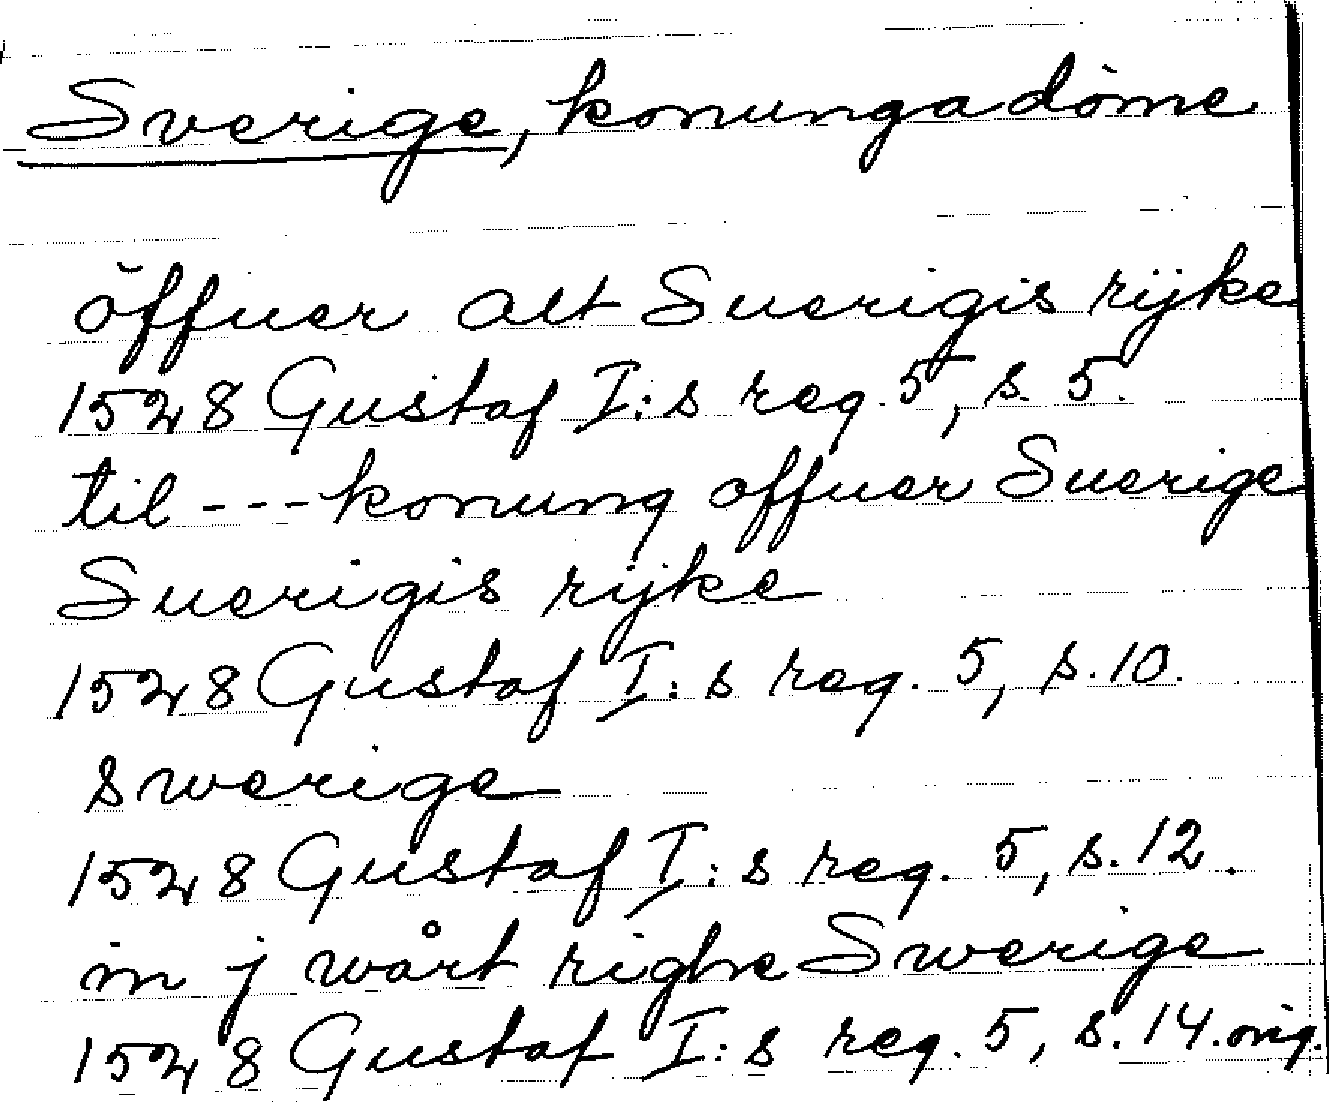 Sverige, konungadöme
öffuer alt Suerigis rijke
1528 Gustaf I:s reg. 5, s. 5.
til --- konung offuer Suerige
Suerigis rijke
1528 Gustaf I:s reg. 5, s. 10.
Swerige
1528 Gustaf I:s reg. 5, s. 12.
in j wårt righe Swerige
1528 Gustaf I:s reg. 5, s. 14. orig.